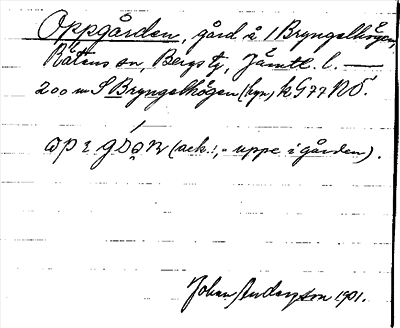 Oppgården, gård å 1 Bryngelhögen,
Rätans sn, Bergs tg, Jämtl. l. —
200 m S Bryngelhögen (byn) k G77 NÖ.
(ack., = uppe i gården).
Johan Anderson 1901.